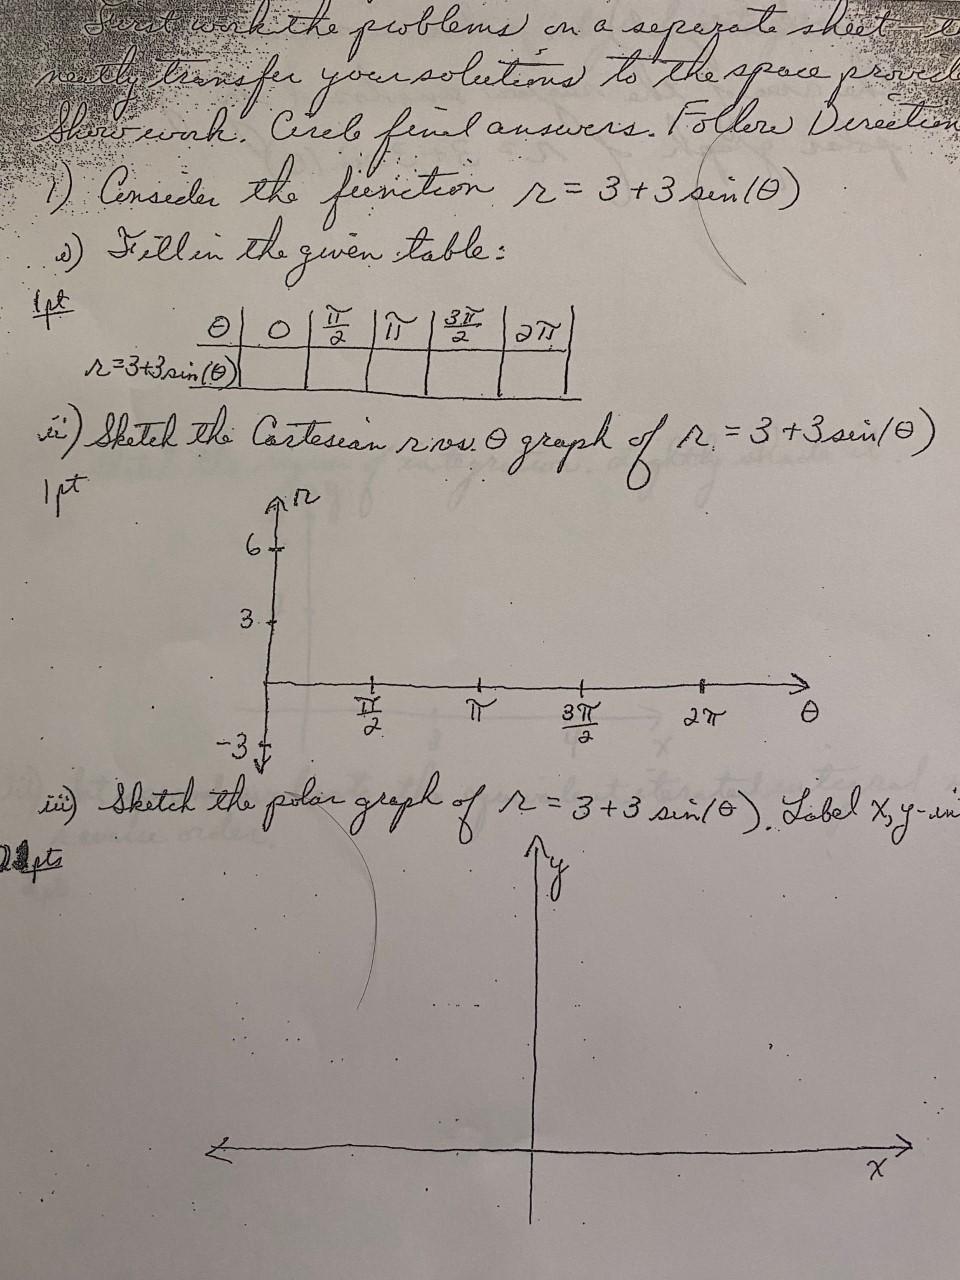 First work the problems on a separate sheet
neatly transfer your solutions to the space
Show work. Circle final answers. Follow
1) Consider the function r = 3 + 3 sin(θ)
i) Fill in the given table:
1pt
θ 0 π/2 π 3π/2 2π
r=3+3sin(θ)
ii) Sketch the Cartesian r vs. θ graph of r = 3 + 3 sin(θ)
1pt
r
6
3
π/2 π 3π/2 2π θ
-3
iii) Sketch the polar graph of r = 3 + 3 sin(θ). Label x, y-in
2 pts
y
x